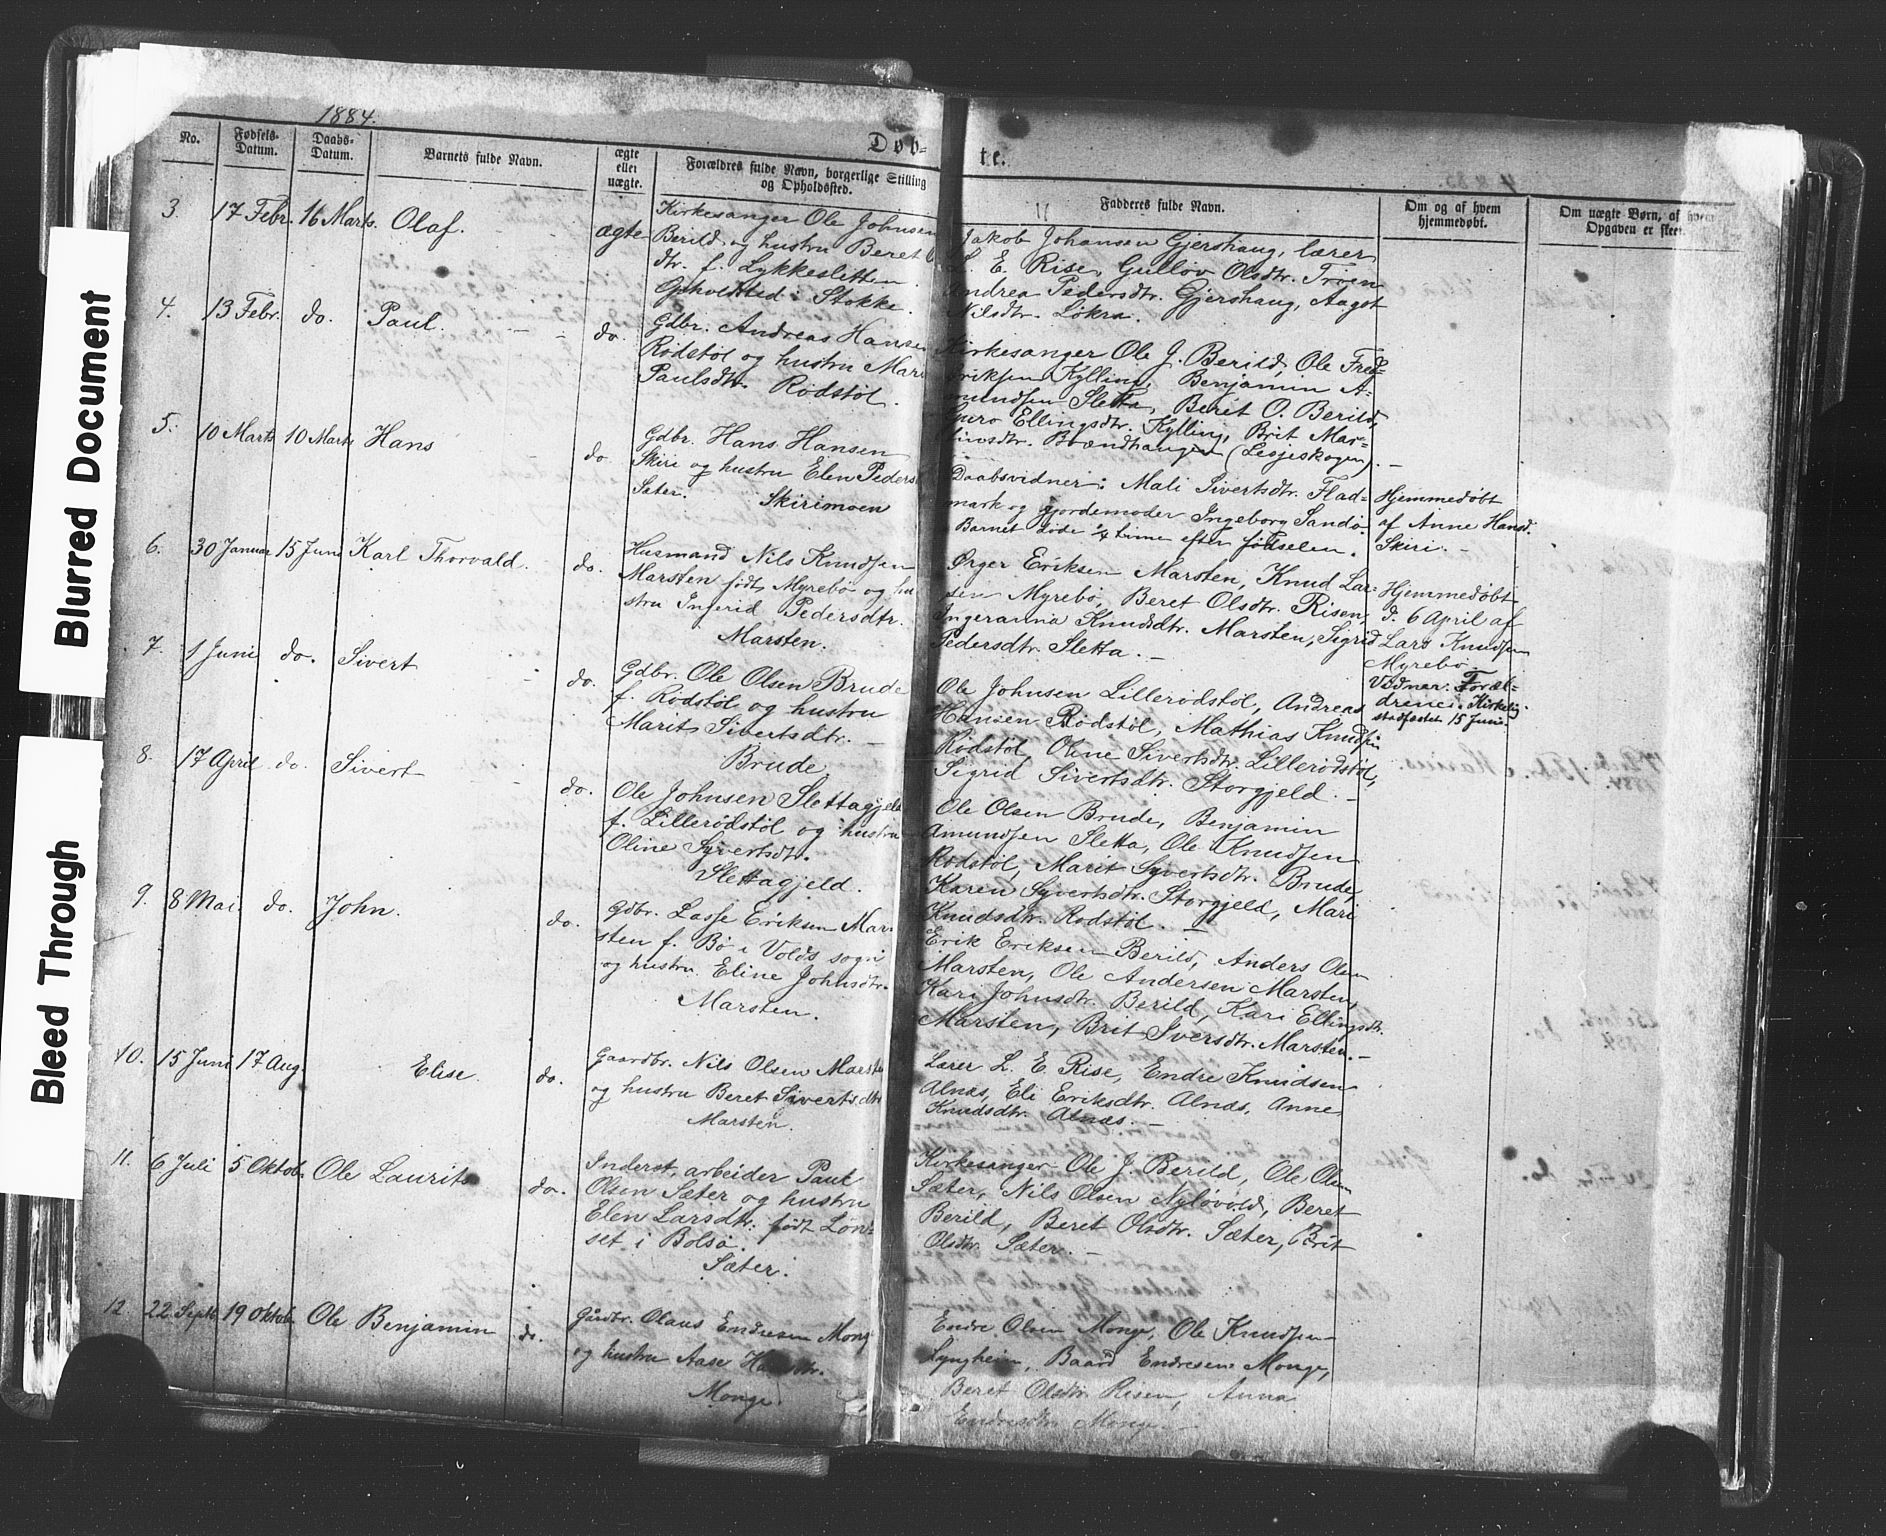 Blurred Document
Bleed Through
1884.
Døb-
te.
No.
Fødsels-
Datum.
Daabs-
Datum.
Barnets fulde Navn.
ægte
eller
uægte.
Forældres fulde Navn, borgerlige Stilling
og Opholdssted.
Fadderes fulde Navn.
Om og af hvem
hjemmedøbt.
Om uægte Børn, af hvem
Opgaven er skeet.
3. 17 Febr. 16 Marts. Olaf. ægte
Kirkesanger Ole Johnsen
Berild og hustru Beret
dtr. f. Lykkeslitten.
Opholdsted: Stokke.
Jakob Johansen Gjershaug, lærer
L. E. Rise, Gulløv Olsdtr. Trøen
Andrea Pedersdtr. Gjershaug, Aagot
Nilsdtr. Løkra.
4. 13 Febr. do. Paul. do.
Gdbr. Andreas Hansen
Rødstøl og hustru Mari
Paulsdtr. Rødstøl.
Kirkesanger Ole J. Berild, Ole Fred-
riksen Kylling, Benjamin A-
mundsen Sletta, Beret O. Berild,
Guro Ellingsdtr. Kylling, Brit Mar-
tinsdtr. Brændhaugen (Lesjeskogen). -
5. 10 Marts 10 Marts Hans do.
Gdbr. Hans Hansen
Skiri og hustru Elen Peders
Sæter. Skirimoen
Daabsvidner: Mali Sivertsdtr. Flad-
mark og gjordemoder Ingeborg Sandø.
Barnet døde ¼ time efter fødselen.
Hjemmedøbt
af Anne Hansd.
Skiri. -
6. 30 Januar 15 Juni Karl Thorvald. do.
Husmand Nils Knudsen
Marsten født Myrebø og hu
stru Ingerid Pedersdtr.
Marsten.
Ørger Eriksen Marsten, Knud Lar-
sen Myrebø, Beret Olsdtr. Risen,
Ingeranna Knudsdtr. Marsten, Sigrid
Pedersdtr. Sletta. -
Hjemmedøbt
d. 6 April af
Lars Knudsen
Myrebø. -
Vidner: Foræl-
drene. Kirkelig
stadfæstet 15 Juni.
7. 1 Juni do. Sivert do.
Gdbr. Ole Olsen Brude
f. Rødstøl og hustru
Marit Sivertsdtr. -
Brude
Ole Johnsen Lillerødstøl, Andreas
Hansen Rødstøl, Mathias Knudsen
Rødstøl, Oline Sivertsdtr. Lillerødstøl,
Sigrid Sivertsdtr. Storgjeld. -
8. 17 April do. Sivert do.
Ole Johnsen Slettagjeld
f. Lillerødstøl og hustru
Oline Syvertsdtr.
Slettagjeld.
Ole Olsen Brude, Benjamin
Amundsen Sletta, Ole Knudsen
Rødstøl, Marit Syvertsdtr. Brude,
Karen Syvertsdtr. Storgjeld, Mari
Knudsdtr. Rødstøl. -
9. 8 Mai. do. John. do.
Gdbr. Lasse Eriksen Mar-
sten f. Bø i Volds sogn
og hustru Eline Johnsdtr.
Marsten.
Erik Eriksen Berild, Anders Olsen
Marsten, Ole Andersen Marsten,
Kari Johnsdtr. Berild, Kari Ellingsdtr.
Marsten, Brit Iversdtr. Marsten. -
10. 15 Juni 17 Aug. Elise. do.
Gaardbr. Nils Olsen Marsten
og hustru Beret Sivertsdtr
Marsten.
Lærer L. E. Rise, Endre Knudsen
Alnæs, Eli Eriksdtr. Alnæs, Anne
Knudsdtr. Alnæs. -
11. 6 Juli 5 Oktob. Ole Laurits do.
Inderst, arbeider Paul
Olsen Sæter og hustru
Elen Larsdtr. født Løn-
set i Bolsø.
Sæter.
Kirkesanger Ole J. Berild, Ole Olsen
Sæter, Nils Olsen Nyløvold, Beret
Berild, Beret Olsdtr. Sæter, Brit
Olsdtr. Sæter. -
12. 22 Septb. 19 Oktob. Ole Benjamin do.
Gårdbr. Olaus Endresen Monge
og hustru Aase Hansdtr.
Monge
Endre Olsen Monge, Ole Knudsen
Lyngheim, Baard Endresen Monge,
Beret Olsdtr Risen, Anna
Endresdtr Monge. -